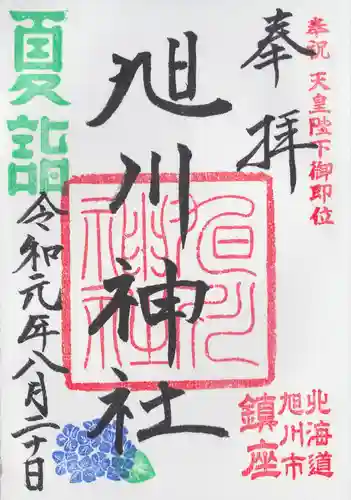 奉祝 天皇陛下御即位
奉拝
旭川神社
夏詣
令和元年八月二十日
北海道
旭川市
鎮座